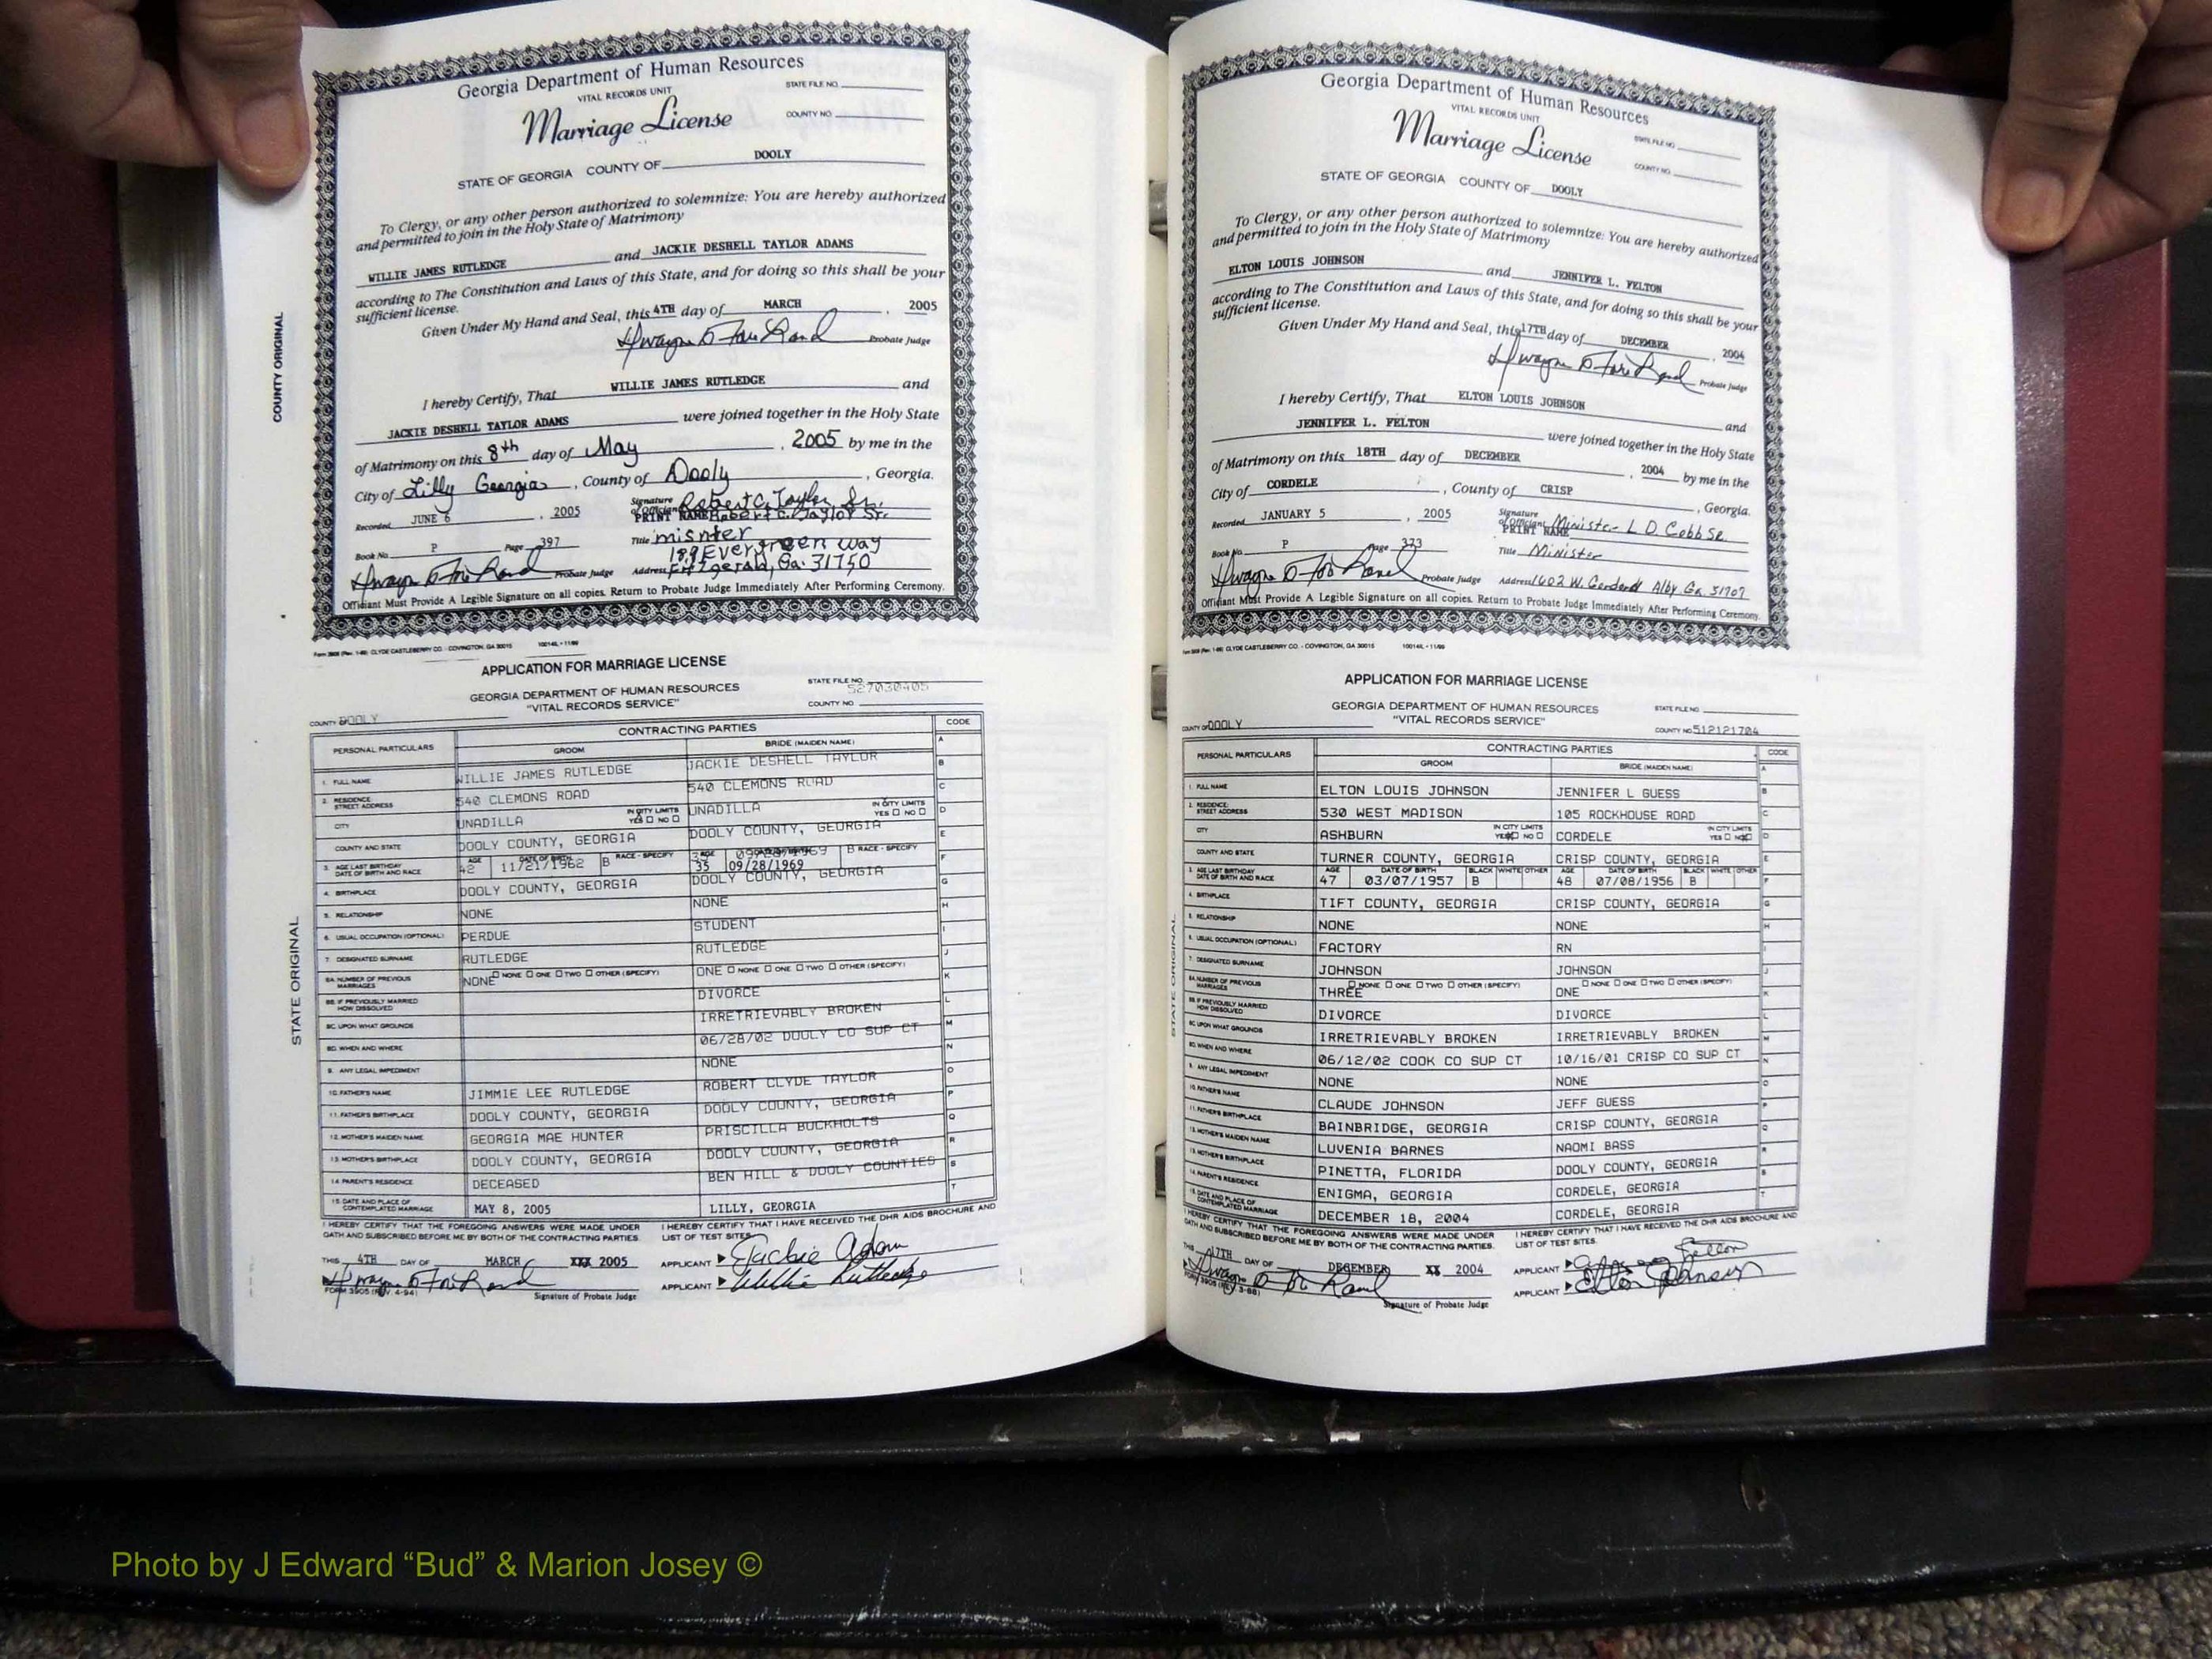 COUNTY ORIGINAL
Georgia Department of Human Resources
VITAL RECORDS UNIT
STATE FILE NO.
Marriage License
COUNTY NO.
STATE OF GEORGIA COUNTY OF DOOLY
To Clergy, or any other person authorized to solemnize: You are hereby authorized
and permitted to join in the Holy State of Matrimony
WILLIE JAMES RUTLEDGE and JACKIE DESHELL TAYLOR ADAMS
according to The Constitution and Laws of this State, and for doing so this shall be your
sufficient license.
Given Under My Hand and Seal, this 4TH day of MARCH, 2005
Probate Judge
I hereby Certify, That WILLIE JAMES RUTLEDGE and
JACKIE DESHELL TAYLOR ADAMS were joined together in the Holy State
of Matrimony on this 8th day of May, 2005 by me in the
City of Lilly Georgia, County of Dooly, Georgia.
Recorded JUNE 6, 2005 Signature of Officiant Robert C. Taylor Sr.
PRINT NAME Robert C. Taylor Sr.
Book No. P Page 397 Title misnter
189 Evergreen way
Probate Judge Address Fitzgerald, Ga. 31750
Officiant Must Provide A Legible Signature on all copies. Return to Probate Judge Immediately After Performing Ceremony.
Form 3908 (Rev. 1-98) CLYDE CASTLEBERRY CO. - COVINGTON, GA 30015 100146L • 11/99
STATE ORIGINAL
APPLICATION FOR MARRIAGE LICENSE
GEORGIA DEPARTMENT OF HUMAN RESOURCES
"VITAL RECORDS SERVICE"
STATE FILE NO. 527030405
COUNTY NO.
COUNTY OF DOOLY
PERSONAL PARTICULARS CONTRACTING PARTIES CODE
GROOM BRIDE (MAIDEN NAME) A
1. FULL NAME WILLIE JAMES RUTLEDGE JACKIE DESHELL TAYLOR B
2. RESIDENCE: STREET ADDRESS 540 CLEMONS ROAD 540 CLEMONS ROAD C
CITY UNADILLA IN CITY LIMITS YES NO UNADILLA IN CITY LIMITS YES NO D
COUNTY AND STATE DOOLY COUNTY, GEORGIA DOOLY COUNTY, GEORGIA E
3. AGE LAST BIRTHDAY DATE OF BIRTH AND RACE AGE 42 DATE OF BIRTH 11/21/1962 B RACE - SPECIFY AGE 35 09/28/1969 B RACE - SPECIFY F
4. BIRTHPLACE DOOLY COUNTY, GEORGIA DOOLY COUNTY, GEORGIA G
5. RELATIONSHIP NONE NONE H
6. USUAL OCCUPATION (OPTIONAL) PERDUE STUDENT I
7. DESIGNATED SURNAME RUTLEDGE RUTLEDGE J
8A. NUMBER OF PREVIOUS MARRIAGES NONE NONE ONE TWO OTHER (SPECIFY) ONE NONE ONE TWO OTHER (SPECIFY) K
8B. IF PREVIOUSLY MARRIED HOW DISSOLVED DIVORCE L
8C. UPON WHAT GROUNDS IRRETRIEVABLY BROKEN
8D. WHEN AND WHERE 06/28/02 DOOLY CO SUP CT M
9. ANY LEGAL IMPEDIMENT NONE N
10. FATHER'S NAME JIMMIE LEE RUTLEDGE ROBERT CLYDE TAYLOR O
11. FATHER'S BIRTHPLACE DOOLY COUNTY, GEORGIA DOOLY COUNTY, GEORGIA P
12. MOTHER'S MAIDEN NAME GEORGIA MAE HUNTER PRISCILLA BUCKHOLTS Q
13. MOTHER'S BIRTHPLACE DOOLY COUNTY, GEORGIA DOOLY COUNTY, GEORGIA R
14. PARENT'S RESIDENCE DECEASED BEN HILL & DOOLY COUNTIES S
15. DATE AND PLACE OF CONTEMPLATED MARRIAGE MAY 8, 2005 LILLY, GEORGIA T
I HEREBY CERTIFY THAT THE FOREGOING ANSWERS WERE MADE UNDER
OATH AND SUBSCRIBED BEFORE ME BY BOTH OF THE CONTRACTING PARTIES.
I HEREBY CERTIFY THAT I HAVE RECEIVED THE DHR AIDS BROCHURE AND
LIST OF TEST SITES.
THIS 4TH DAY OF MARCH XXX 2005
APPLICANT Jackie Adams
APPLICANT Willie Rutledge
FORM 3905 (REV. 4-94) Signature of Probate Judge
Georgia Department of Human Resources
VITAL RECORDS UNIT
STATE FILE NO.
Marriage License
COUNTY NO.
STATE OF GEORGIA COUNTY OF DOOLY
To Clergy, or any other person authorized to solemnize: You are hereby authorized
and permitted to join in the Holy State of Matrimony
ELTON LOUIS JOHNSON and JENNIFER L. FELTON
according to The Constitution and Laws of this State, and for doing so this shall be your
sufficient license.
Given Under My Hand and Seal, this 17TH day of DECEMBER, 2004
Probate Judge
I hereby Certify, That ELTON LOUIS JOHNSON and
JENNIFER L. FELTON were joined together in the Holy State
of Matrimony on this 18TH day of DECEMBER, 2004 by me in the
City of CORDELE, County of CRISP, Georgia.
Recorded JANUARY 5, 2005 Signature of Officiant Minister L D. Cobb Sr.
PRINT NAME
Book No. P Page 373 Title Minister
Probate Judge Address 1602 W. Alby Ga. 31707
Officiant Must Provide A Legible Signature on all copies. Return to Probate Judge Immediately After Performing Ceremony.
CLYDE CASTLEBERRY CO. - COVINGTON, GA 30015 100146L • 11/99
STATE ORIGINAL
APPLICATION FOR MARRIAGE LICENSE
GEORGIA DEPARTMENT OF HUMAN RESOURCES
"VITAL RECORDS SERVICE"
STATE FILE NO.
COUNTY NO. 512121704
COUNTY OF DOOLY
PERSONAL PARTICULARS CONTRACTING PARTIES CODE
GROOM BRIDE (MAIDEN NAME) A
1. FULL NAME ELTON LOUIS JOHNSON JENNIFER L GUESS B
2. RESIDENCE: STREET ADDRESS 530 WEST MADISON 105 ROCKHOUSE ROAD C
CITY ASHBURN IN CITY LIMITS YES NO CORDELE IN CITY LIMITS YES NO D
COUNTY AND STATE TURNER COUNTY, GEORGIA CRISP COUNTY, GEORGIA E
3. AGE LAST BIRTHDAY DATE OF BIRTH AND RACE AGE 47 DATE OF BIRTH 03/07/1957 BLACK B WHITE OTHER AGE 48 DATE OF BIRTH 07/08/1956 BLACK B WHITE OTHER F
4. BIRTHPLACE TIFT COUNTY, GEORGIA CRISP COUNTY, GEORGIA G
5. RELATIONSHIP NONE NONE H
6. USUAL OCCUPATION (OPTIONAL) FACTORY RN I
7. DESIGNATED SURNAME JOHNSON JOHNSON J
8A. NUMBER OF PREVIOUS MARRIAGES THREE NONE ONE TWO OTHER (SPECIFY) ONE NONE ONE TWO OTHER (SPECIFY) K
8B. IF PREVIOUSLY MARRIED HOW DISSOLVED DIVORCE DIVORCE L
8C. UPON WHAT GROUNDS IRRETRIEVABLY BROKEN IRRETRIEVABLY BROKEN M
8D. WHEN AND WHERE 06/12/02 COOK CO SUP CT 10/16/01 CRISP CO SUP CT N
9. ANY LEGAL IMPEDIMENT NONE NONE O
10. FATHER'S NAME CLAUDE JOHNSON JEFF GUESS P
11. FATHER'S BIRTHPLACE BAINBRIDGE, GEORGIA CRISP COUNTY, GEORGIA Q
12. MOTHER'S MAIDEN NAME LUVENIA BARNES NAOMI BASS R
13. MOTHER'S BIRTHPLACE PINETTA, FLORIDA DOOLY COUNTY, GEORGIA S
14. PARENT'S RESIDENCE ENIGMA, GEORGIA CORDELE, GEORGIA T
15. DATE AND PLACE OF CONTEMPLATED MARRIAGE DECEMBER 18, 2004 CORDELE, GEORGIA
I HEREBY CERTIFY THAT THE FOREGOING ANSWERS WERE MADE UNDER
OATH AND SUBSCRIBED BEFORE ME BY BOTH OF THE CONTRACTING PARTIES.
I HEREBY CERTIFY THAT I HAVE RECEIVED THE DHR AIDS BROCHURE AND
LIST OF TEST SITES.
THIS 17TH DAY OF DECEMBER XX 2004
APPLICANT Felton
APPLICANT Elton Johnson
Signature of Probate Judge
Photo by J Edward “Bud” & Marion Josey ©